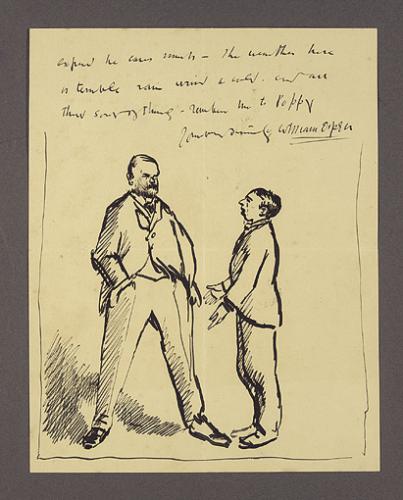 expect he cares much – The weather here
is terrible rain wind & cold. and all
that sort of thing – remember me to Poppy
Yours sincerely William Orpen